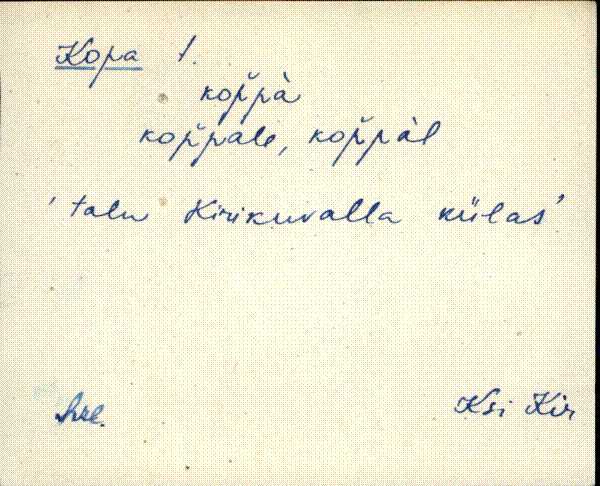 Kopa t.
kop̆pà
kop̆pale, kop̆pàl
'talu Kirikuvalla külas'
Ksi Kir